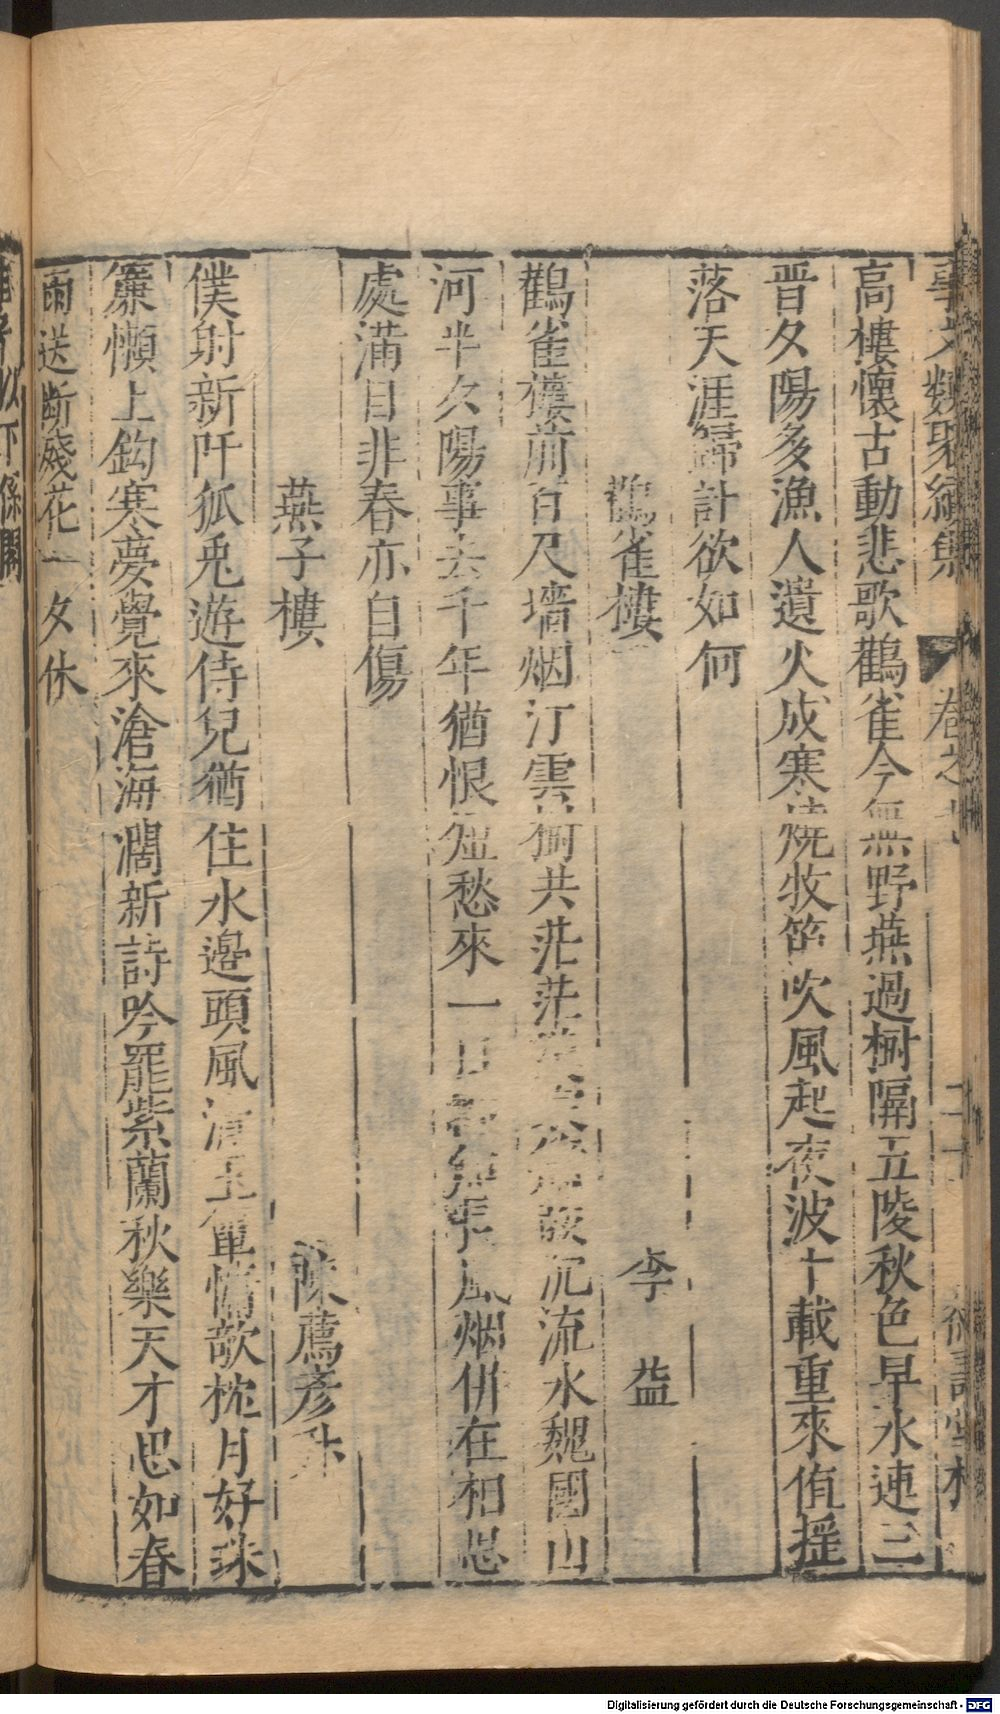 事文類聚續集 卷之七 二十 德壽堂梓
高樓懷古動悲歌鸛雀今無野燕過樹隔五陵秋色早水連三
晋夕陽多漁人遺火成寒燒牧笛吹風起夜波十載重來值搖
落天涯歸計欲如何
鸛雀樓 李益
鸛雀樓前百尺墻烟汀雲樹共茫茫沉流水魏國山
河半夕陽事去千年猶恨短愁來一日風烟併在相思
處滿目非春亦自傷
燕子樓 陳薦彥升
僕射新阡狐兎遊侍兒猶住水邊頭風清玉簟慵欹枕月好珠
簾懶上鈎寒夢覺來滄海濶新詩吟罷紫蘭秋樂天才思如春
雨送斷殘花一夕休
以下係閣
Digitalisierung gefördert durch die Deutsche Forschungsgemeinschaft - DFG